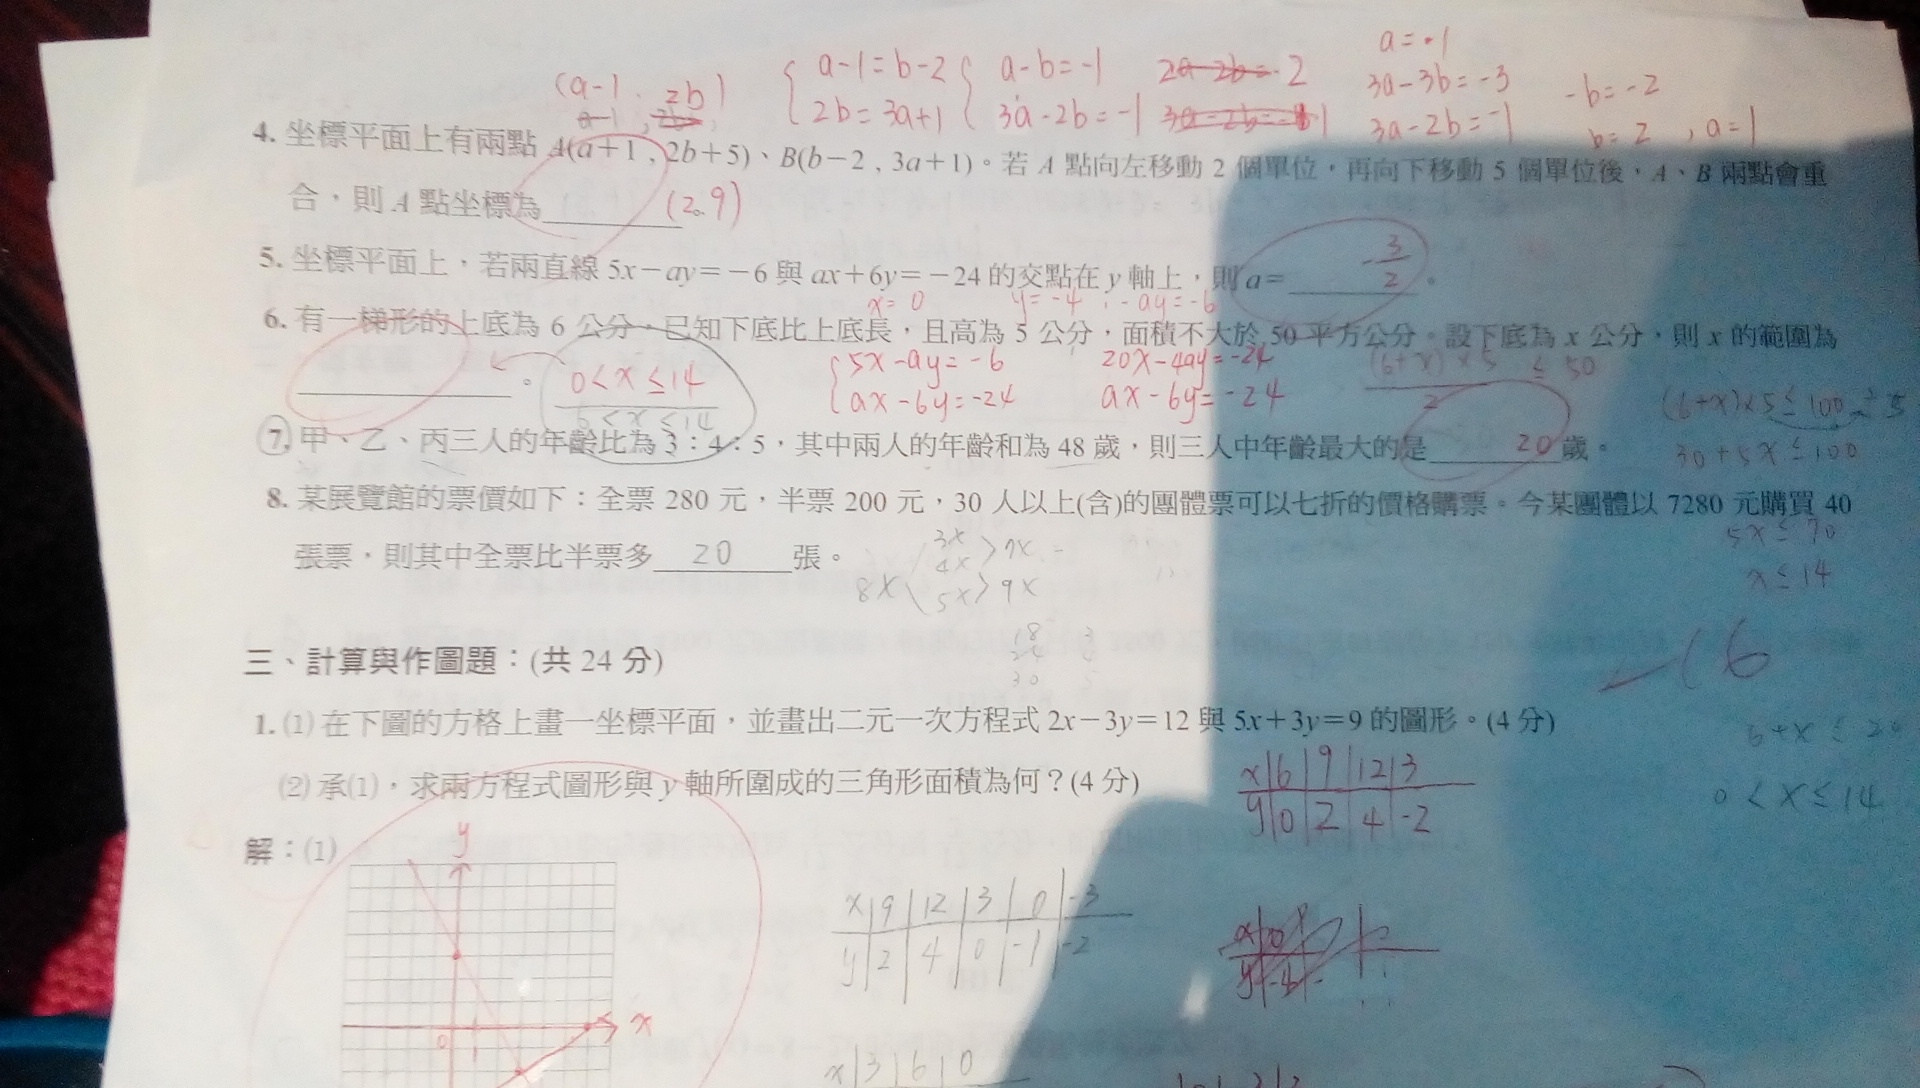 (a-1 , 2b) { a-1=b-2 { a-b=-1 2a-2b=-2 a=-1
2b=3a+1 3a-2b=-1 3a-3b=-3 -b=-2
3a-2b=-1 b=2 , a=1
4. 坐標平面上有兩點 A(a+1 , 2b+5)、B(b-2 , 3a+1)。若 A 點向左移動 2 個單位,再向下移動 5 個單位後,A、B 兩點會重
合,則 A 點坐標為 (2,9)
5. 坐標平面上,若兩直線 5x-ay=-6 與 ax+6y=-24 的交點在 y 軸上,則 a= -3/2 。
x=0 y=-4 -ay=-6
6. 有一梯形的上底為 6 公分,已知下底比上底長,且高為 5 公分,面積不大於 50 平方公分。設下底為 x 公分,則 x 的範圍為
。 0<x≤14 { 5x-ay=-6 20x-4ay=-24 (6+x)×5/2 ≤ 50
6<x≤14 ax-6y=-24 ax-6y=-24 (6+x)×5≤100
7. 甲、乙、丙三人的年齡比為 3:4:5,其中兩人的年齡和為 48 歲,則三人中年齡最大的是 20 歲。
30+5x≤100
8. 某展覽館的票價如下:全票 280 元,半票 200 元,30 人以上(含)的團體票可以七折的價格購票。今某團體以 7280 元購買 40
張票,則其中全票比半票多 20 張。
5x≤70
x≤14
3x
4x >7x
8x 5x >9x
18 3
24 4
30 5
-16
三、計算與作圖題:(共 24 分)
1. (1) 在下圖的方格上畫一坐標平面,並畫出二元一次方程式 2x-3y=12 與 5x+3y=9 的圖形。(4 分)
6+x≤20
(2) 承(1),求兩方程式圖形與 y 軸所圍成的三角形面積為何?(4 分)
x 6 9 12 3
y 0 2 4 -2
0<x≤14
解:(1)
y
x 9 12 3 0 -3
y 2 4 0 -1 -2
x
0 1
x 3 6 0